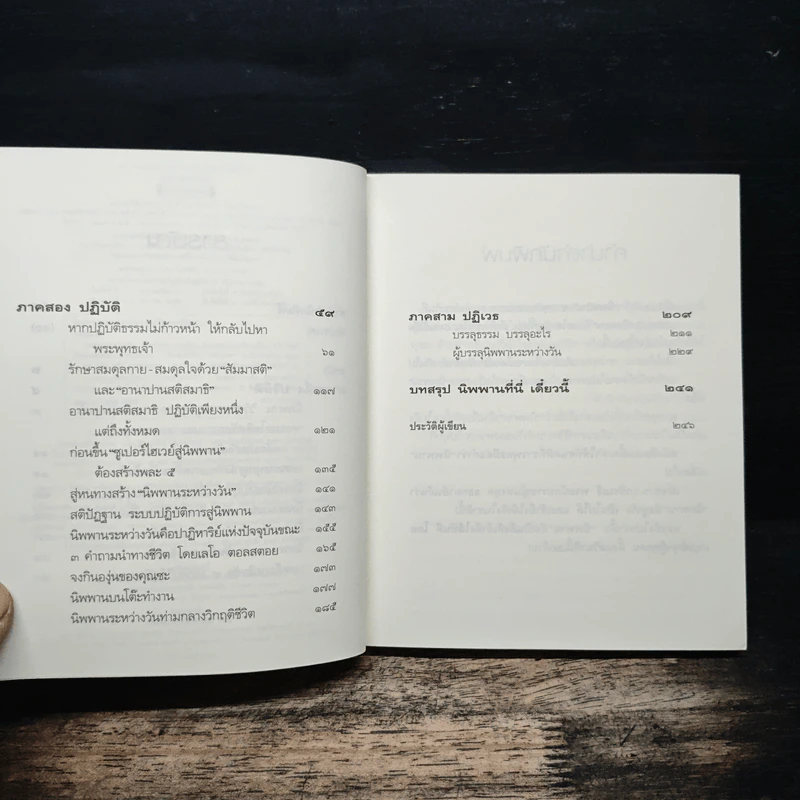 ภาคสอง ปฏิบัติ ๕๙
หากปฏิบัติธรรมไม่ก้าวหน้า ให้กลับไปหา
พระพุทธเจ้า ๖๑
รักษาสมดุลกาย-สมดุลใจด้วย"สัมมาสติ"
และ"อานาปานสติสมาธิ" ๑๑๗
อานาปานสติสมาธิ ปฏิบัติเพียงหนึ่ง
แต่ถึงทั้งหมด ๑๒๑
ก่อนขึ้น"ซูเปอร์ไฮเวย์สู่นิพพาน"
ต้องสร้างพละ ๕ ๑๓๕
สู่หนทางสร้าง"นิพพานระหว่างวัน" ๑๔๑
สติปัฏฐาน ระบบปฏิบัติการสู่นิพพาน ๑๔๓
นิพพานระหว่างวันคือปาฏิหาริย์แห่งปัจจุบันขณะ ๑๕๕
๓ คำถามนำทางชีวิต โดยเลโอ ตอลสตอย ๑๖๕
จงกินองุ่นของคุณซะ ๑๗๓
นิพพานบนโต๊ะทำงาน ๑๗๗
นิพพานระหว่างวันท่ามกลางวิกฤติชีวิต ๑๘๕
ภาคสาม ปฏิเวธ ๒๐๙
บรรลุธรรม บรรลุอะไร ๒๑๑
ผู้บรรลุนิพพานระหว่างวัน ๒๒๙
บทสรุป นิพพานที่นี่ เดี๋ยวนี้ ๒๔๑
ประวัติผู้เขียน ๒๔๖